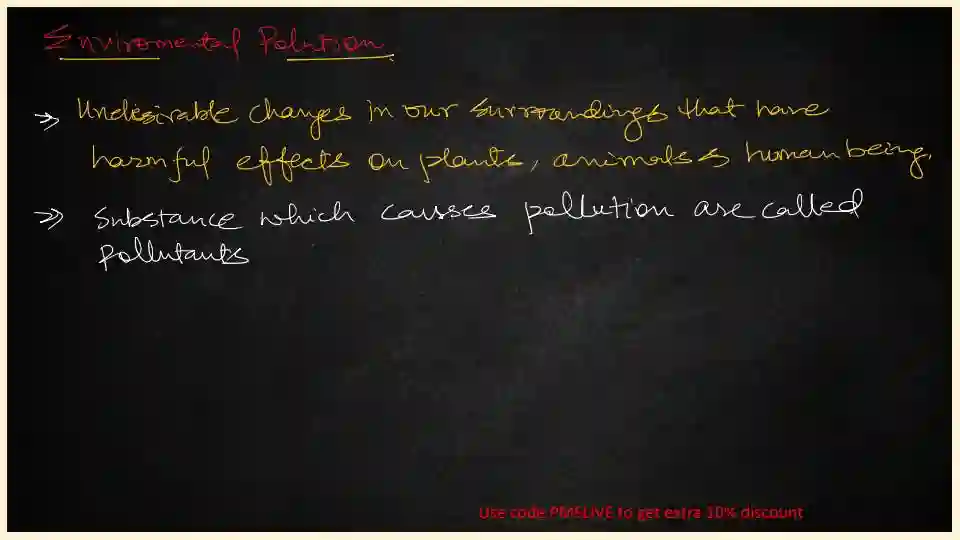 Enviromental Polution
→ Undesirable changes in our surroundings that have
harmful effects on plants, animals & human being.
⇒ Substance which causes pollution are called
Pollutants
Use code PMSLIVE to get extra 10% discount